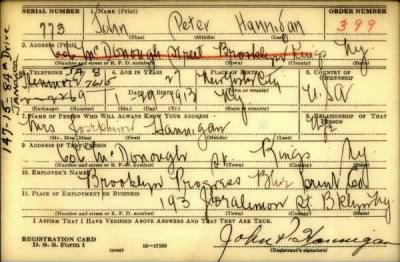 SERIAL NUMBER 1. NAME (Print) ORDER NUMBER
773 John Peter Hannigan 399
(First) (Middle) (Last)
2. ADDRESS (Print)
McDonough Street Brooklyn Kings Ny.
(Number and street or R. F. D. number) (Town) (County) (State)
3. TELEPHONE 4. AGE IN YEARS 5. PLACE OF BIRTH 6. COUNTRY OF CITIZENSHIP
27 New York City
DATE OF BIRTH
1913 Ny U.S.A
(Mo.) (Day) (Yr.) (State or country)
7. NAME OF PERSON WHO WILL ALWAYS KNOW YOUR ADDRESS 8. RELATIONSHIP OF THAT PERSON
Mrs Josephine Hannigan
(Mr., Mrs., Miss) (First) (Middle) (Last)
9. ADDRESS OF THAT PERSON
McDonough St Kings Ny.
(Number and street or R. F. D. number) (Town) (County) (State)
10. EMPLOYER'S NAME
Brooklyn Progress Blue print
11. PLACE OF EMPLOYMENT OR BUSINESS
193 Joralemon St Bklyn Ny
(Number and street or R. F. D. number) (Town) (County) (State)
I AFFIRM THAT I HAVE VERIFIED ABOVE ANSWERS AND THAT THEY ARE TRUE.
REGISTRATION CARD
D. S. S. Form 1 (over) 16-17105 John P Hannigan
147-15-84th Drive